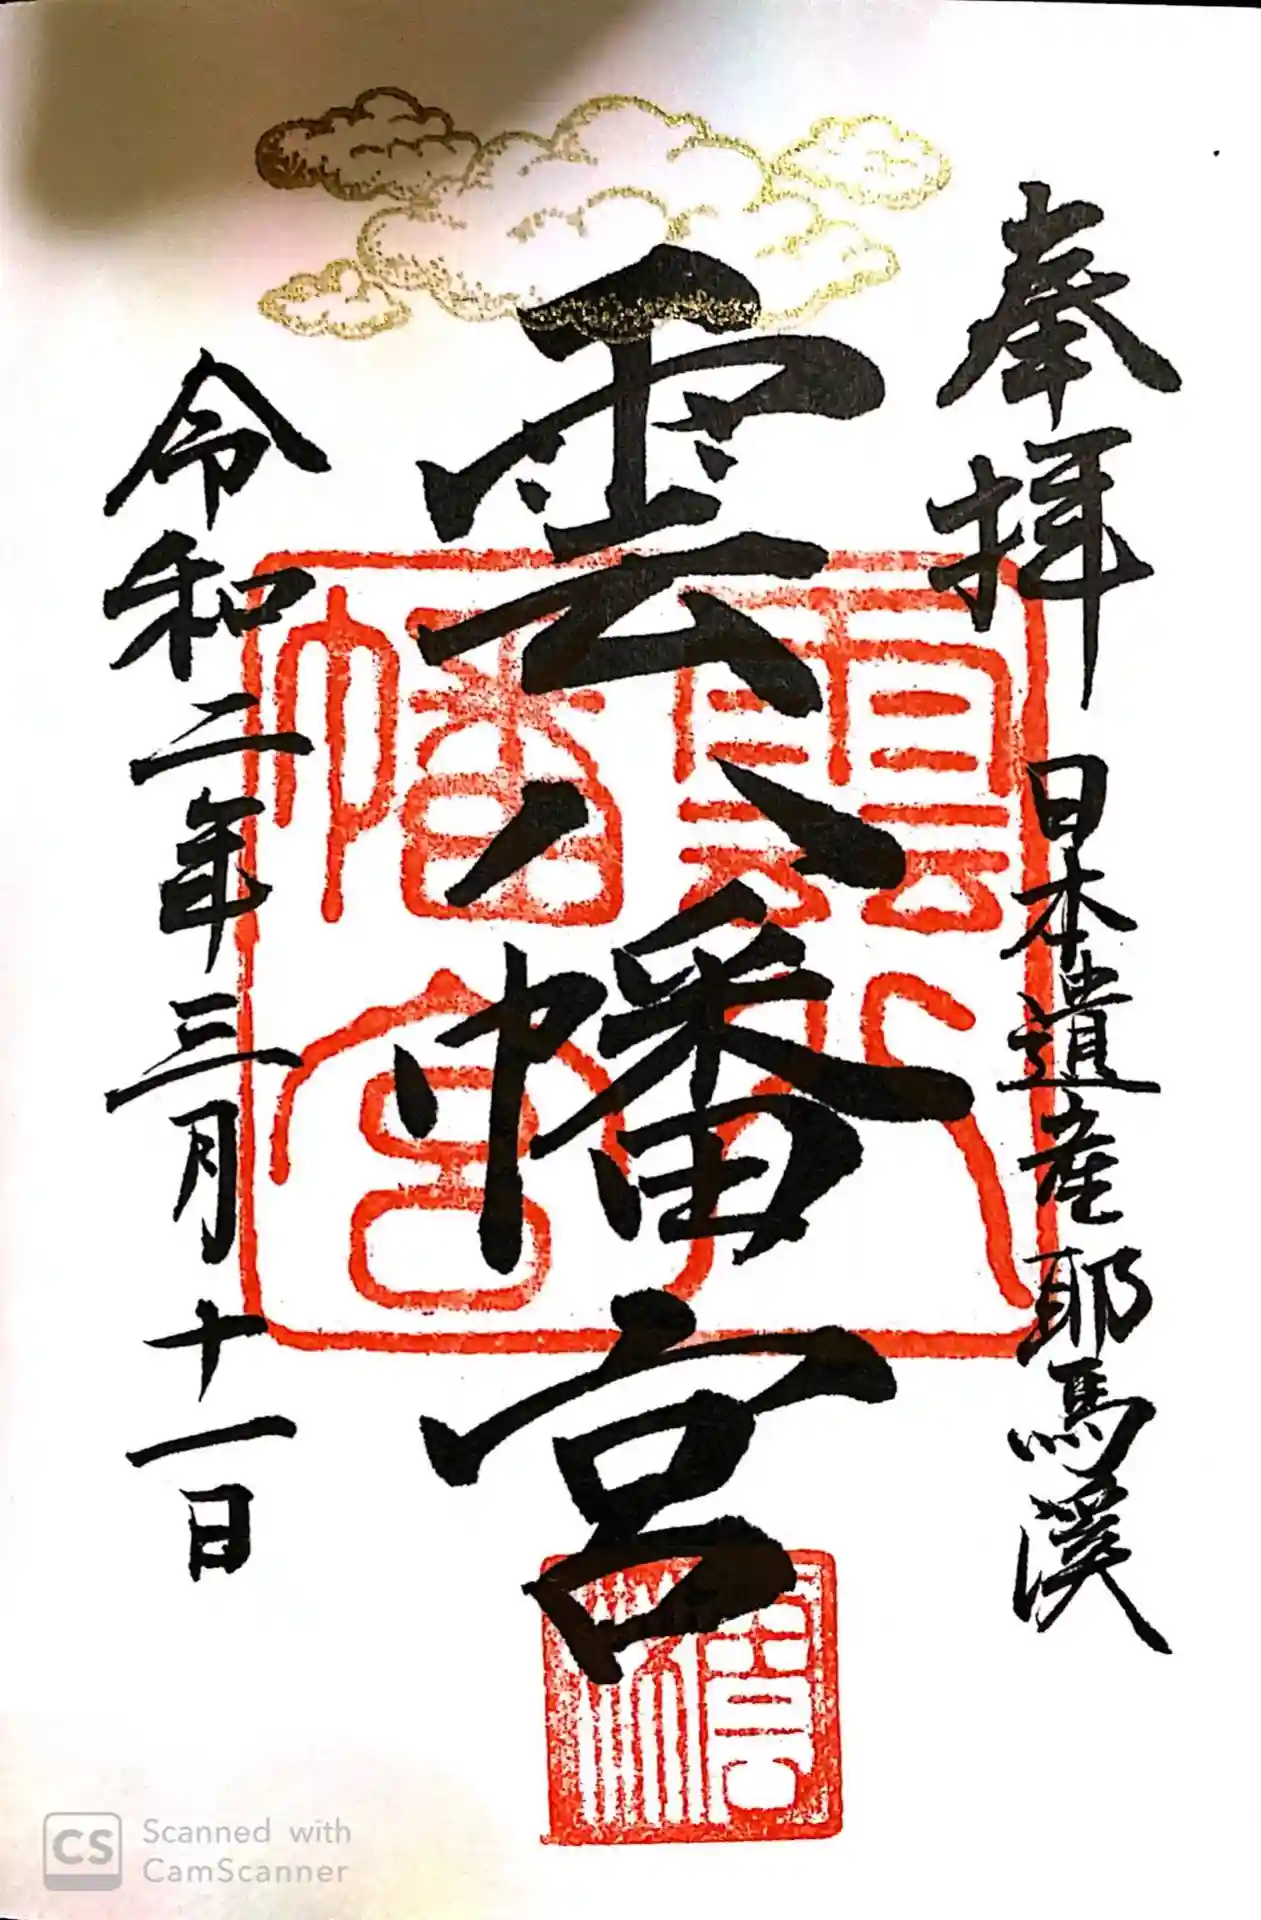 奉拝
日本遺産耶馬溪
雲八幡宮
雲八幡宮
令和二年三月十一日
CS
Scanned with
CamScanner